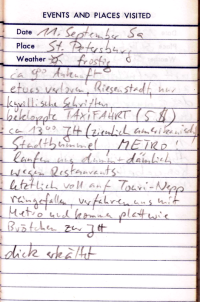 EVENTS AND PLACES VISITED
Date 11. September Sa
Place St. Petersburg
Weather frostig
ca 9⁰⁰ Ankunft
etwas verloren, Riesenstadt, nur
kyrillische Schriften
bekloppte TAXIFAHRT (5 $)
ca 13⁰⁰ JH (ziemlich amerikanisch)
Stadtbummel METRO!
laufen uns dumm + dämlich
wegen Restaurants
letztlich voll auf Touri-Nepp
reingefallen, verfahren uns mit
Metro und kommen platt wie
Brötchen zur JH
dick erkältet